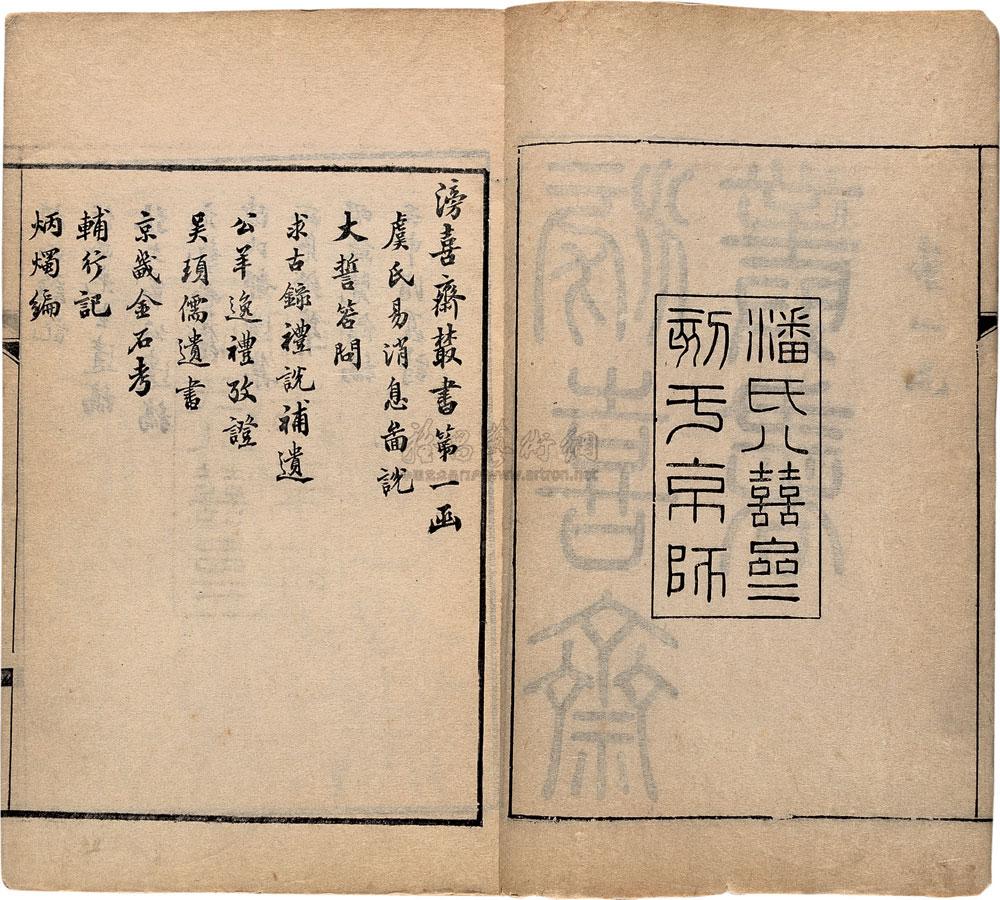 潘氏八囍亝
刻于京師
滂喜齋叢書第一函
虞氏易消息圖說
大誓答問
求古錄禮說補遺
公羊逸禮攷證
吴頊儒遺書
京畿金石考
輔行記
炳燭編
雅昌藝術網